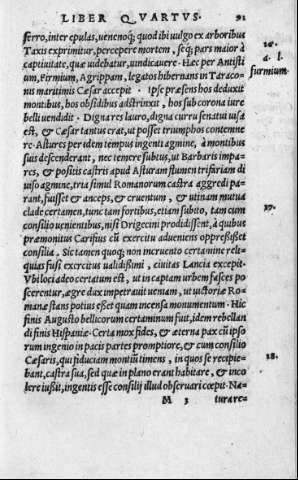 LIBER QVARTVS. 91
ferro, inter epulas, uenenoq; quod ibi uulgo ex arboribus
Taxis exprimitur, percepere mortem, seq; pars maior à
captiuitate, quæ uidebatur, uindicauere. Hæc per Antisti
um, Firmium, Agrippam, legatos hibernans in Taraco-
nis maritimis Cæsar accepit. Ipse præsens hos deduxit
montibus, hos obsidibus adstrinxit, hos sub corona iure
belli uendidit. Digna res lauro, digna curru senatui uisa
est, & Cæsar tantus erat, ut posset triumphos contemne
re. Astures per idem tempus ingenti agmine, à montibus
suis descenderant, nec temere subitus, ut Barbaris impa-
res, & positis castris apud Asturam flumen trifariam di
uiso agmine, tria simul Romanorum castra aggredi pa-
rant, fuisset & anceps, & cruentum, & utinam mutua
clade certamen, tunc tam fortibus, etiam subito, tam cum
consilio uenientibus, nisi Drigecini prodidissent, à quibus
præmonitus Carisius cū exercitu adueniens oppressisset
consilia. Sic tamen quoq; non incruento certamine reli-
quias fusi exercitus ualidissimi, ciuitas Lancia excepit.
Vbi loci adeo certatum est, ut in captam urbem fasces po
scerentur, ægre dux impetrauit ueniam, ut uictoriæ Ro-
manæ stans potius esset quàm incensa monumentum. Hic
finis Augusto bellicorum certaminum fuit, idem rebellan
di finis Hispaniæ. Certa mox fides, & æterna pax cū ipso
rum ingenio in pacis partes promptiore, & cum consilio
Cæsaris, qui fiduciam montiū timens, in quos se recipie-
bant, castra sua, sed quæ in plano erant habitare, & inco
lere iussit, ingentis esse consilij illud obseruari cœpit. Na-
M 3 tura re-
a. l.
firmium
27.
28.